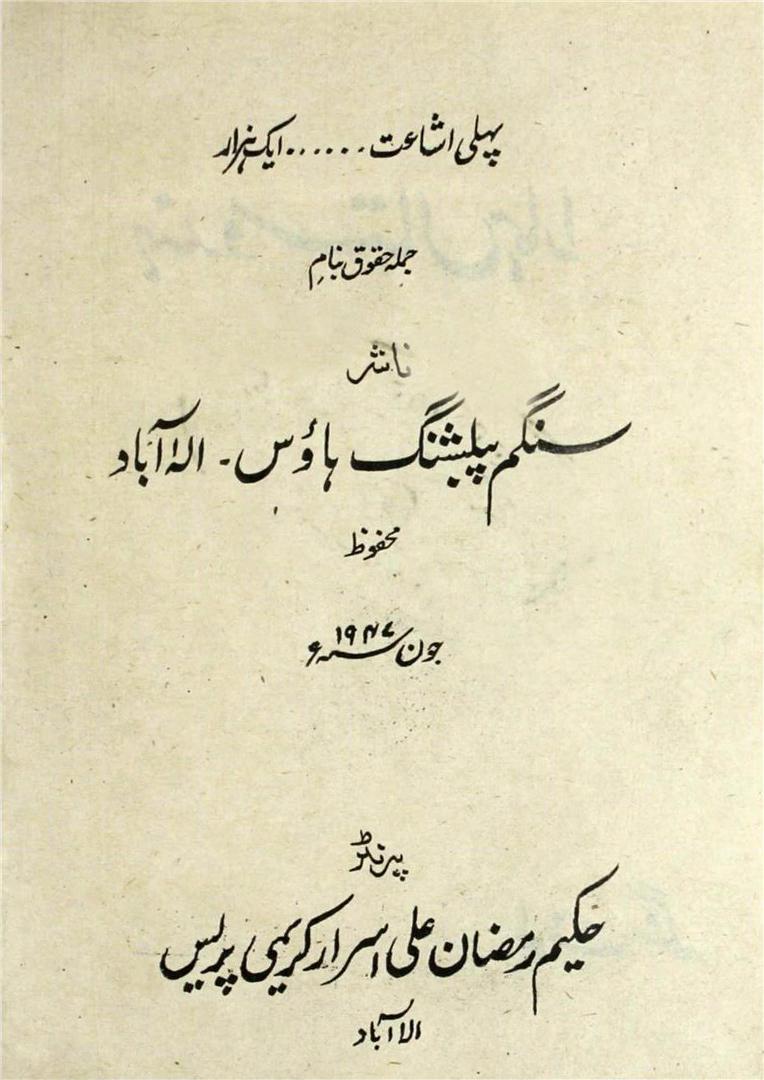 پہلی اشاعت ...... ایک ہزار
جملہ حقوق بنامِ
ناشر
سنگم پبلشنگ ہاؤس ۔ الہٰ آباد
محفوظ
جون ۱۹۴۷ء
پرنٹر
حکیم رمضان علی اسرار کریمی پریس
الہ آباد